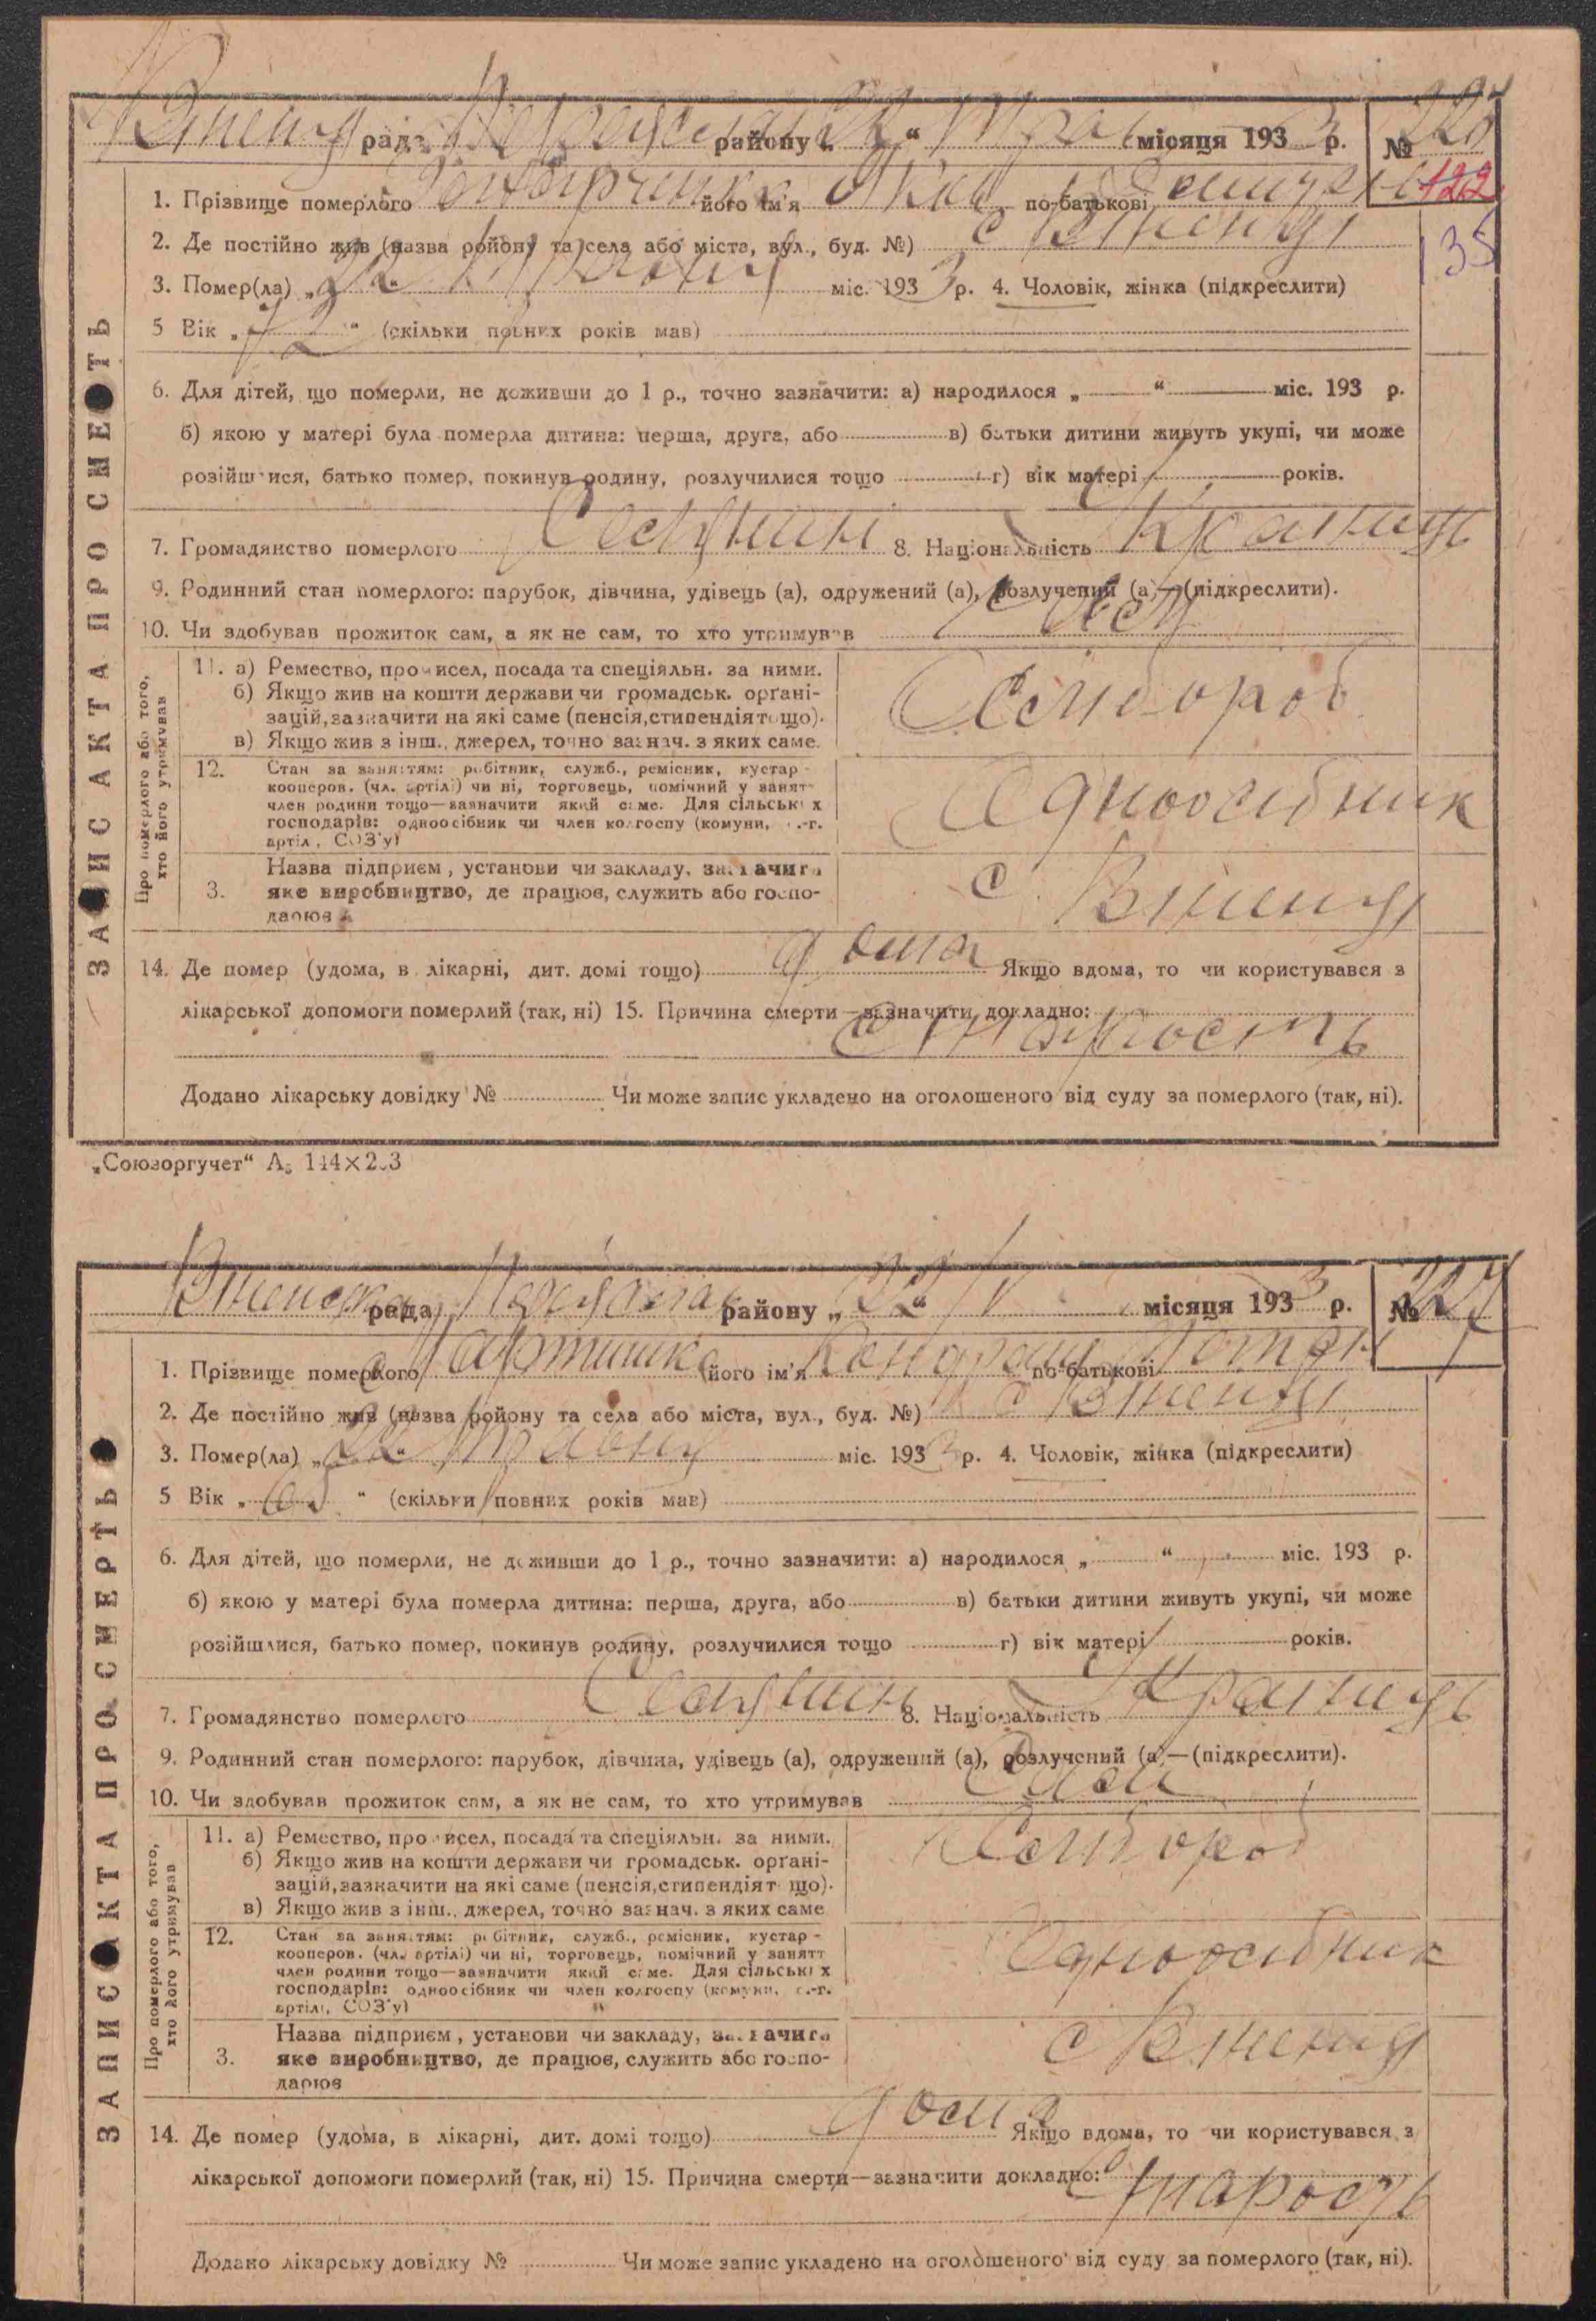 рада району „22“ місяця 1933 р. №
122
1. Прізвище померлого його ім'я Яків по-батькові
35
2. Де постійно жив (назва району та села або міста, вул., буд. №) с
3. Помер(ла) „22“ травня міс. 1933 р. 4. Чоловік, жінка (підкреслити)
5 Вік „72“ (скільки повних років мав)
6. Для дітей, що померли, не доживши до 1 р., точно зазначити: а) народилося „ “ міс. 193 р.
б) якою у матері була померла дитина: перша, друга, або в) батьки дитини живуть укупі, чи може
розійшлися, батько помер, покинув родину, розлучилися тощо г) вік матері років.
7. Громадянство померлого 8. Національність Українець
9. Родинний стан померлого: парубок, дівчина, удівець (а), одружений (а), розлучений (а)—(підкреслити).
10. Чи здобував прожиток сам, а як не сам, то хто утримував
ЗАПИС АКТА ПРО СМЕРТЬ
Про померлого або того, хто його утримував
11. а) Ремество, промисел, посада та спеціяльн. за ними.
б) Якщо жив на кошти держави чи громадськ. орґані-
зацій, зазначити на які саме (пенсія, стипендія тощо).
в) Якщо жив з інш., джерел, точно зазнач. з яких саме.
Хлібороб
12. Стан за заняттям: робітник, служб., ремісник, кустар -
кооперов. (чл. артілі) чи ні, торговець, помічний у занятт
член родини тощо—зазначити який саме. Для сільських
господарів: одноосібник чи член колгоспу (комуни, с.-г.
артіл, СОЗ'у)
Одноосібник
3. Назва підприєм, установи чи закладу, зазначити
яке виробництво, де працює, служить або госпо-
дарює
с
14. Де помер (удома, в лікарні, дит. домі тощо) дома Якщо вдома, то чи користувався з
лікарської допомоги померлий (так, ні) 15. Причина смерти—зазначити докладно:
старость
Додано лікарську довідку № Чи може запис укладено на оголошеного від суду за померлого (так, ні).
„Союзоргучет“ А5 144×203
рада району „22“ V місяця 1933 р. № 227
1. Прізвище померлого його ім'я Кондрат по-батькові
2. Де постійно жив (назва району та села або міста, вул., буд. №) с
3. Помер(ла) „22“ травня міс. 1933 р. 4. Чоловік, жінка (підкреслити)
5 Вік „65“ (скільки повних років мав)
6. Для дітей, що померли, не доживши до 1 р., точно зазначити: а) народилося „ “ міс. 193 р.
б) якою у матері була померла дитина: перша, друга, або в) батьки дитини живуть укупі, чи може
розійшлися, батько помер, покинув родину, розлучилися тощо г) вік матері років.
7. Громадянство померлого 8. Національність Українець
9. Родинний стан померлого: парубок, дівчина, удівець (а), одружений (а), розлучений (а)—(підкреслити).
10. Чи здобував прожиток сам, а як не сам, то хто утримував Сам
ЗАПИС АКТА ПРО СМЕРТЬ
Про померлого або того, хто його утримував
11. а) Ремество, промисел, посада та спеціяльн. за ними.
б) Якщо жив на кошти держави чи громадськ. орґані-
зацій, зазначити на які саме (пенсія, стипендія тощо).
в) Якщо жив з інш., джерел, точно зазнач. з яких саме
Хлібороб
12. Стан за заняттям: робітник, служб., ремісник, кустар -
кооперов. (чл. артілі) чи ні, торговець, помічний у занятт
член родини тощо—зазначити який саме. Для сільських
господарів: одноосібник чи член колгоспу (комуни, с.-г.
артілі, СОЗ'у)
Одноосібник
3. Назва підприєм, установи чи закладу, зазначити
яке виробництво, де працює, служить або госпо-
дарює
с
14. Де помер (удома, в лікарні, дит. домі тощо) дома Якщо вдома, то чи користувався з
лікарської допомоги померлий (так, ні) 15. Причина смерти—зазначити докладно: старость
Додано лікарську довідку № Чи може запис укладено на оголошеного від суду за померлого (так, ні).